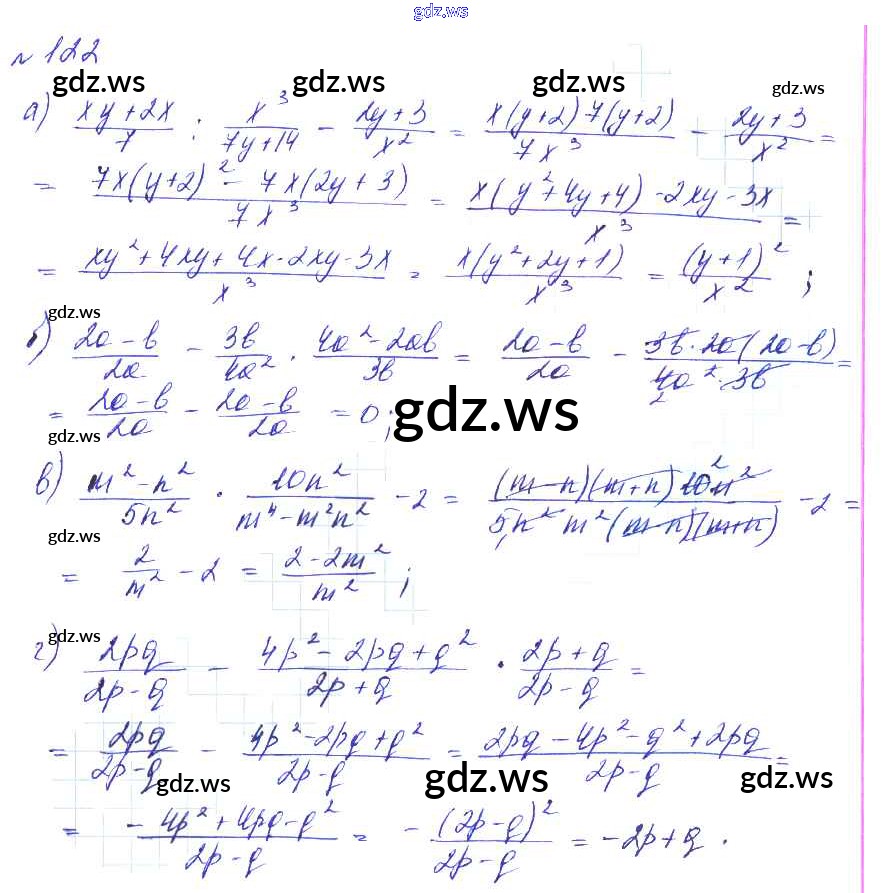 gdz.ws
№ 122
gdz.ws gdz.ws gdz.ws
а) (xy+2x)/7 : x³/(7y+14) - (2y+3)/x² = (x(y+2)7(y+2))/(7x³) - (2y+3)/x² =
= (7x(y+2)² - 7x(2y+3))/(7x³) = (x(y²+4y+4)-2xy-3x)/x³ =
= (xy²+4xy+4x-2xy-3x)/x³ = (x(y²+2y+1))/x³ = (y+1)²/x² ;
gdz.ws
б) (2a-b)/(2a) - (3b)/(4a²) · (4a²-2ab)/(3b) = (2a-b)/(2a) - (3b·2a(2a-b))/(4a²·3b) =
= (2a-b)/(2a) - (2a-b)/(2a) = 0;
gdz.ws gdz.ws
в) (m²-n²)/(5n²) · (10n²)/(m⁴-m²n²) - 2 = ((m-n)(m+n)10n²)/(5n²m²(m-n)(m+n)) - 2 =
gdz.ws
= 2/m² - 2 = (2-2m²)/m² ;
gdz.ws
г) (2pq)/(2p-q) - (4p²-2pq+q²)/(2p+q) · (2p+q)/(2p-q) =
= (2pq)/(2p-q) - (4p²-2pq+q²)/(2p-q) = (2pq-4p²-q²+2pq)/(2p-q) =
gdz.ws gdz.ws gdz.ws
= (-4p²+4pq-q²)/(2p-q) = -(2p-q)²/(2p-q) = -2p+q.